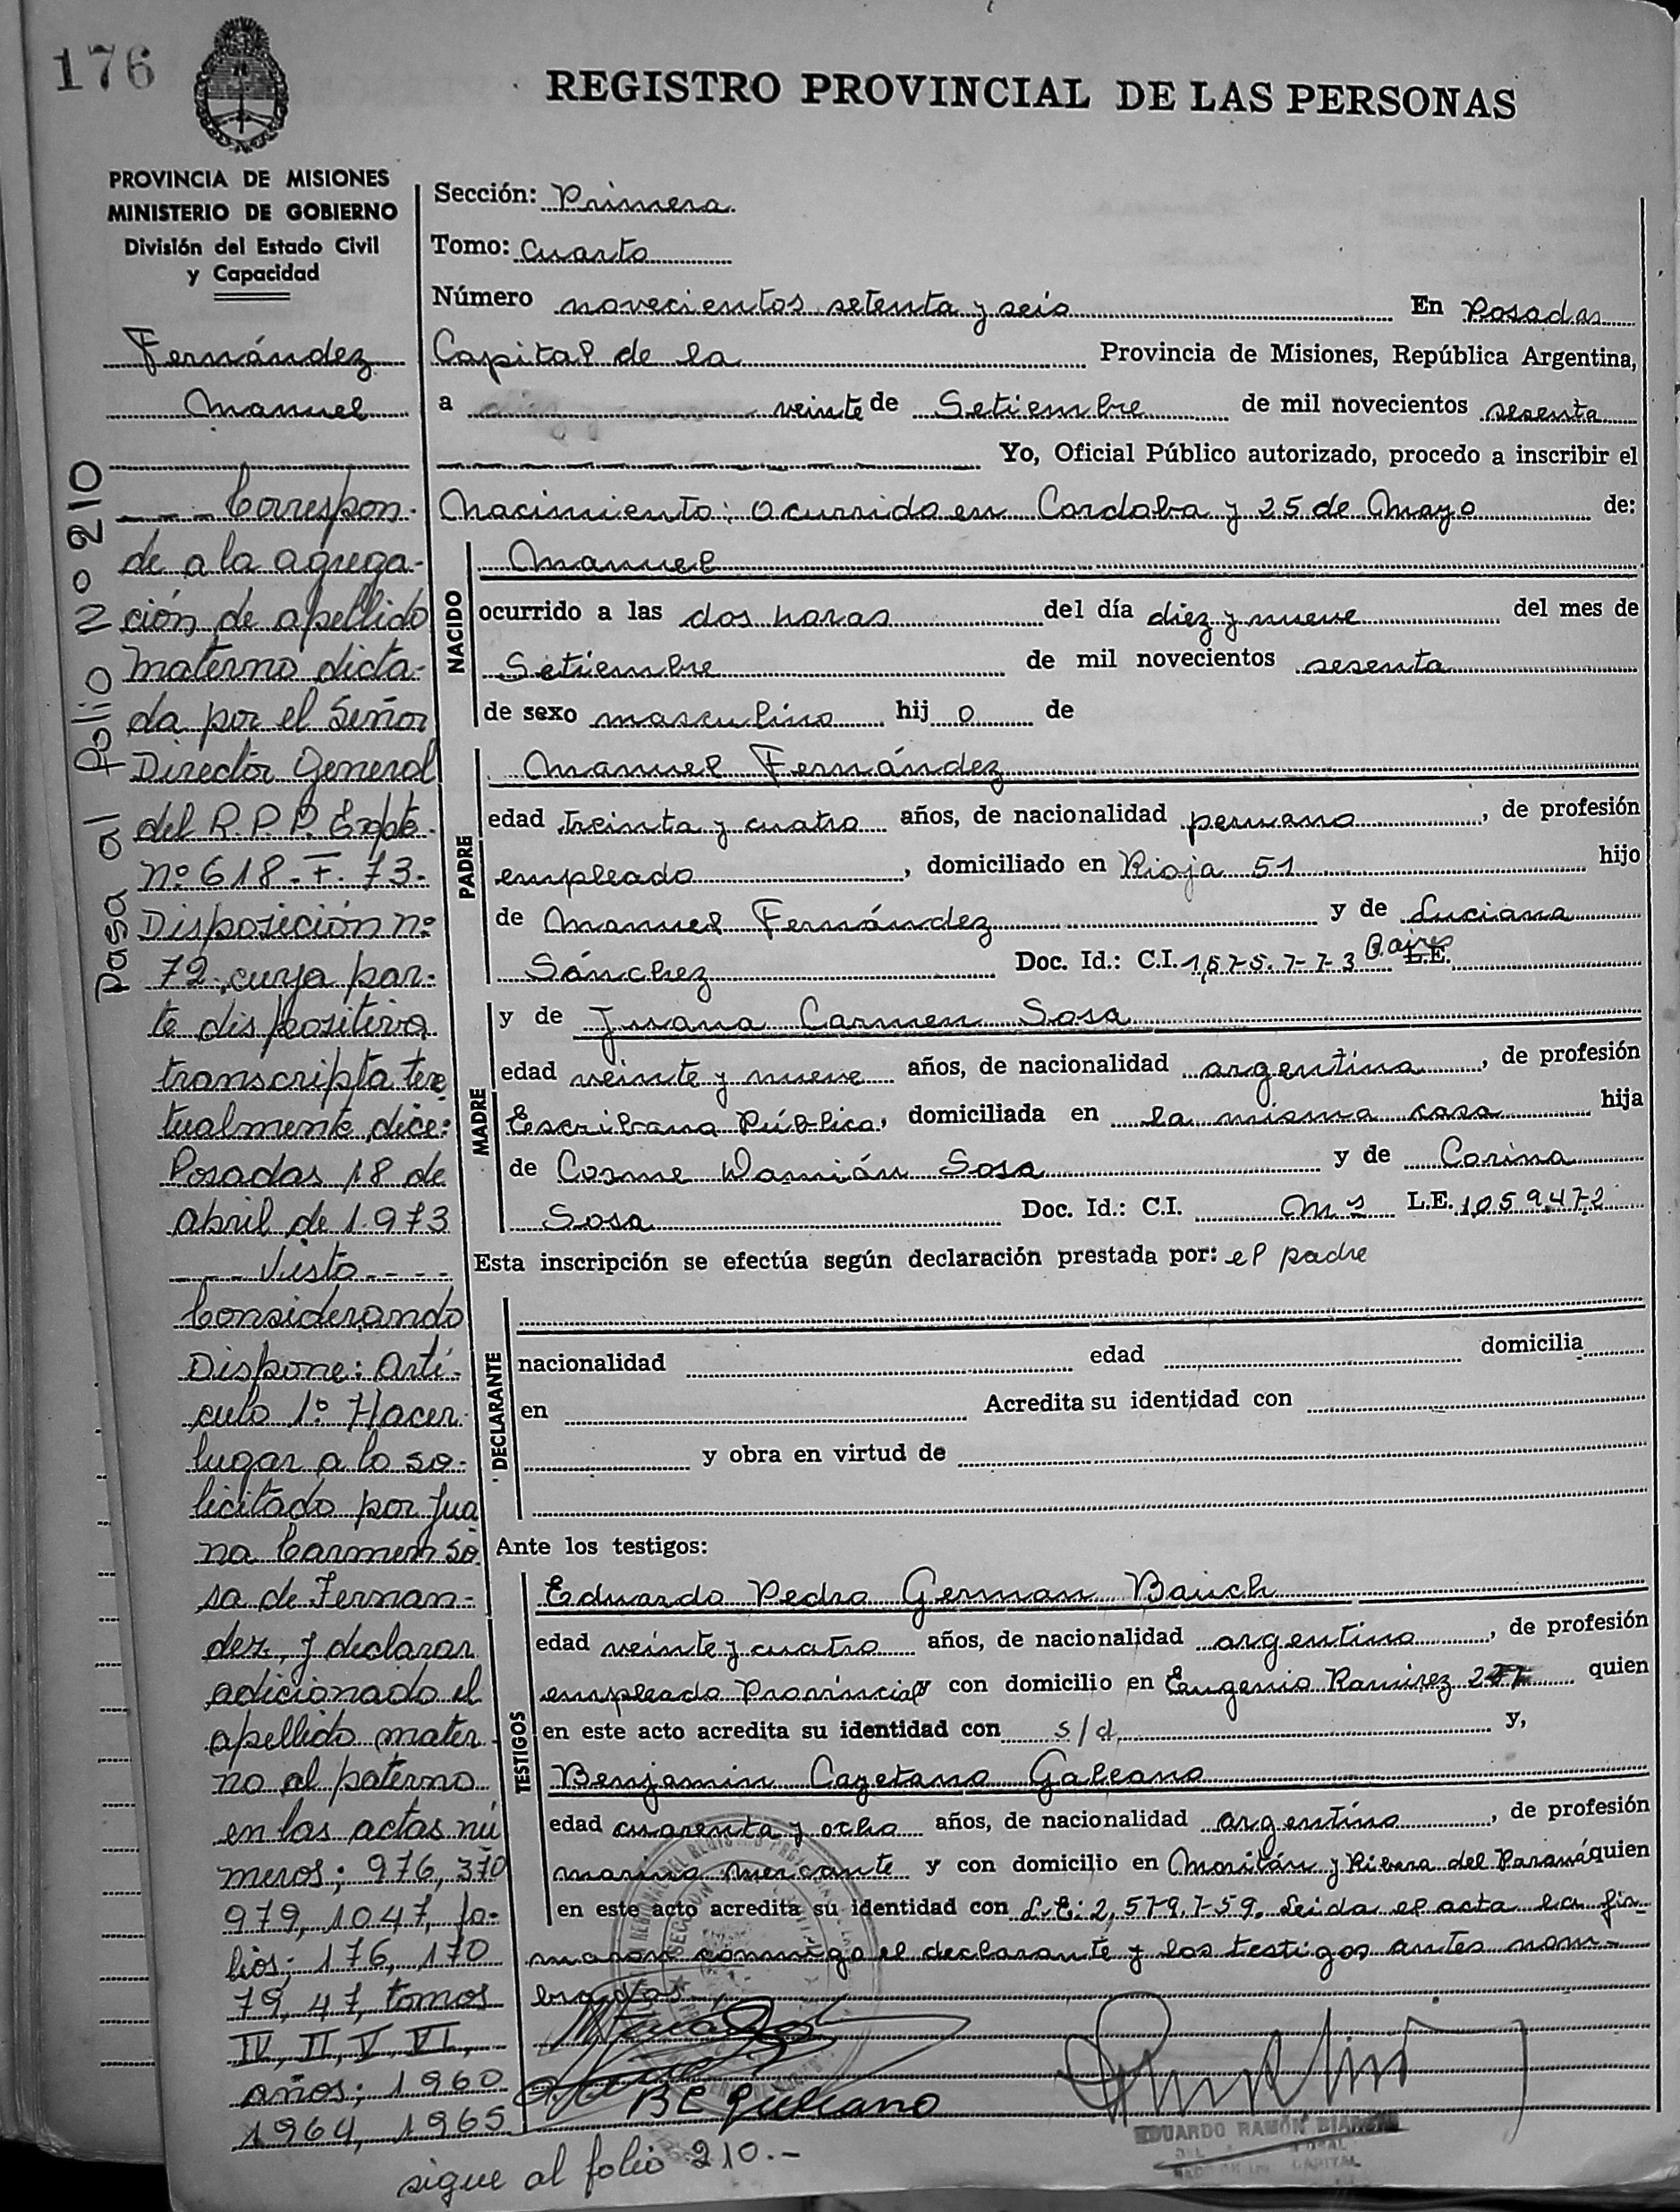 176
REGISTRO PROVINCIAL DE LAS PERSONAS
PROVINCIA DE MISIONES
MINISTERIO DE GOBIERNO
División del Estado Civil
y Capacidad
Fernández
Manuel
Pasa al Folio Nº 210
- - - Correspon-
de a la agrega-
ción de apellido
materno dicta-
da por el Señor
Director General
del R.P.P. Expte.
nº 618-F-73-
Disposición nº
72, cuya par-
te dispositiva
transcripta tex
tualmente dice:
Posadas 18 de
abril de 1.973
- - - Visto - - - -
Considerando
Dispone: Artí-
culo 1º Hacer
lugar a lo so-
licitado por Jua
na Carmen So
sa de Fernan-
dez, y declarar
adicionado el
apellido mater
no al paterno
en las actas nú
meros; 976, 370
979, 1047, fo-
lios; 176, 170
79, 47, tomos
IV, II, V, VI,
años; 1960
1964, 1965
sigue al folio 210.-
Sección: Primera
Tomo: Cuarto
Número novecientos setenta y seis En Posadas
Capital de la Provincia de Misiones, República Argentina,
a veinte de Setiembre de mil novecientos sesenta
Yo, Oficial Público autorizado, procedo a inscribir el
Nacimiento: ocurrido en Cordoba y 25 de Mayo de:
NACIDO
Manuel
ocurrido a las dos horas del día diez y nueve del mes de
Setiembre de mil novecientos sesenta
de sexo masculino hijo de
PADRE
Manuel Fernández
edad treinta y cuatro años, de nacionalidad peruano, de profesión
empleado, domiciliado en Rioja 51 hijo
de Manuel Fernández y de Luciana
Sánchez Doc. Id.: C.I. 1.575.773 B. aires L.E.
MADRE
y de Juana Carmen Sosa
edad veinte y nueve años, de nacionalidad argentina, de profesión
Escribana Pública, domiciliada en la misma casa hija
de Cosme Damián Sosa y de Corina
Sosa Doc. Id.: C.I. L.E. 1.059.472
Esta inscripción se efectúa según declaración prestada por: el padre
DECLARANTE
nacionalidad edad domicilia
en Acredita su identidad con
y obra en virtud de
Ante los testigos:
TESTIGOS
Eduardo Pedro German Bauch
edad veinte y cuatro años, de nacionalidad argentino, de profesión
empleado Provincial y con domicilio en Eugenio Ramirez quien
en este acto acredita su identidad con s/d y,
Benjamin Cayetano Galeano
edad cuarenta y ocho años, de nacionalidad argentino, de profesión
marino mercante y con domicilio en Morilán y Ribera del Paraná quien
en este acto acredita su identidad con L.E: 2,579.759. Leida el acta la fir-
maron conmigo el declarante y los testigos antes nom-
brados
B C Galeano
EDUARDO RAMÓN
CAPITAL